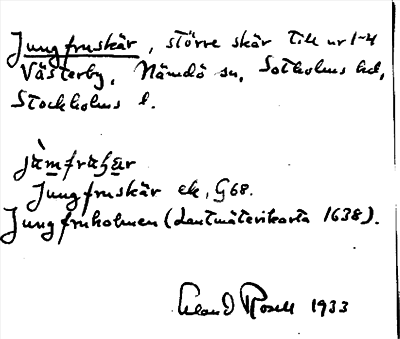 Jungfruskär, större skär till nr 1-4
Västerby, Nämdö sn, Sotholms hd,
Stockholms l.
Jungfruskär ek, G68.
Jungfruholmen (Lantmäterikarta 1638).
Erland Rosell 1933